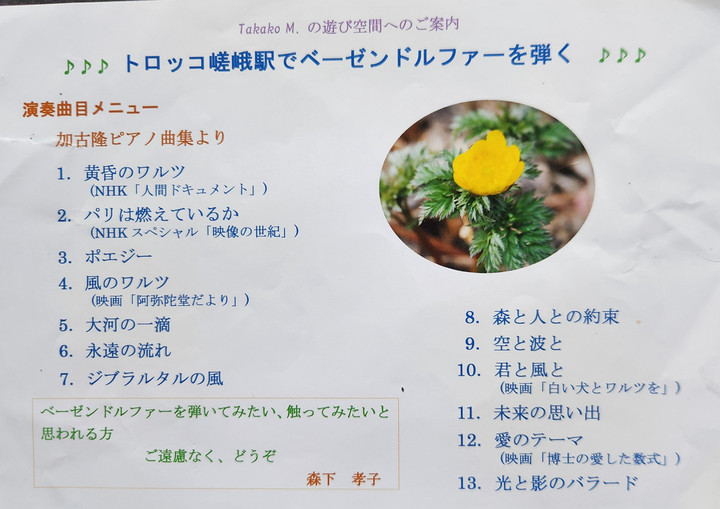 Takako M. の遊び空間へのご案内
♪♪♪ トロッコ嵯峨駅でベーゼンドルファーを弾く ♪♪♪
演奏曲目メニュー
加古隆ピアノ曲集より
1. 黄昏のワルツ
(NHK「人間ドキュメント」)
2. パリは燃えているか
(NHK スペシャル「映像の世紀」)
3. ポエジー
4. 風のワルツ
(映画「阿弥陀堂だより」)
5. 大河の一滴
6. 永遠の流れ
7. ジブラルタルの風
8. 森と人との約束
9. 空と波と
10. 君と風と
(映画「白い犬とワルツを」)
11. 未来の思い出
12. 愛のテーマ
(映画「博士の愛した数式」)
13. 光と影のバラード
ベーゼンドルファーを弾いてみたい、触ってみたいと
思われる方
ご遠慮なく、どうぞ
森下 孝子